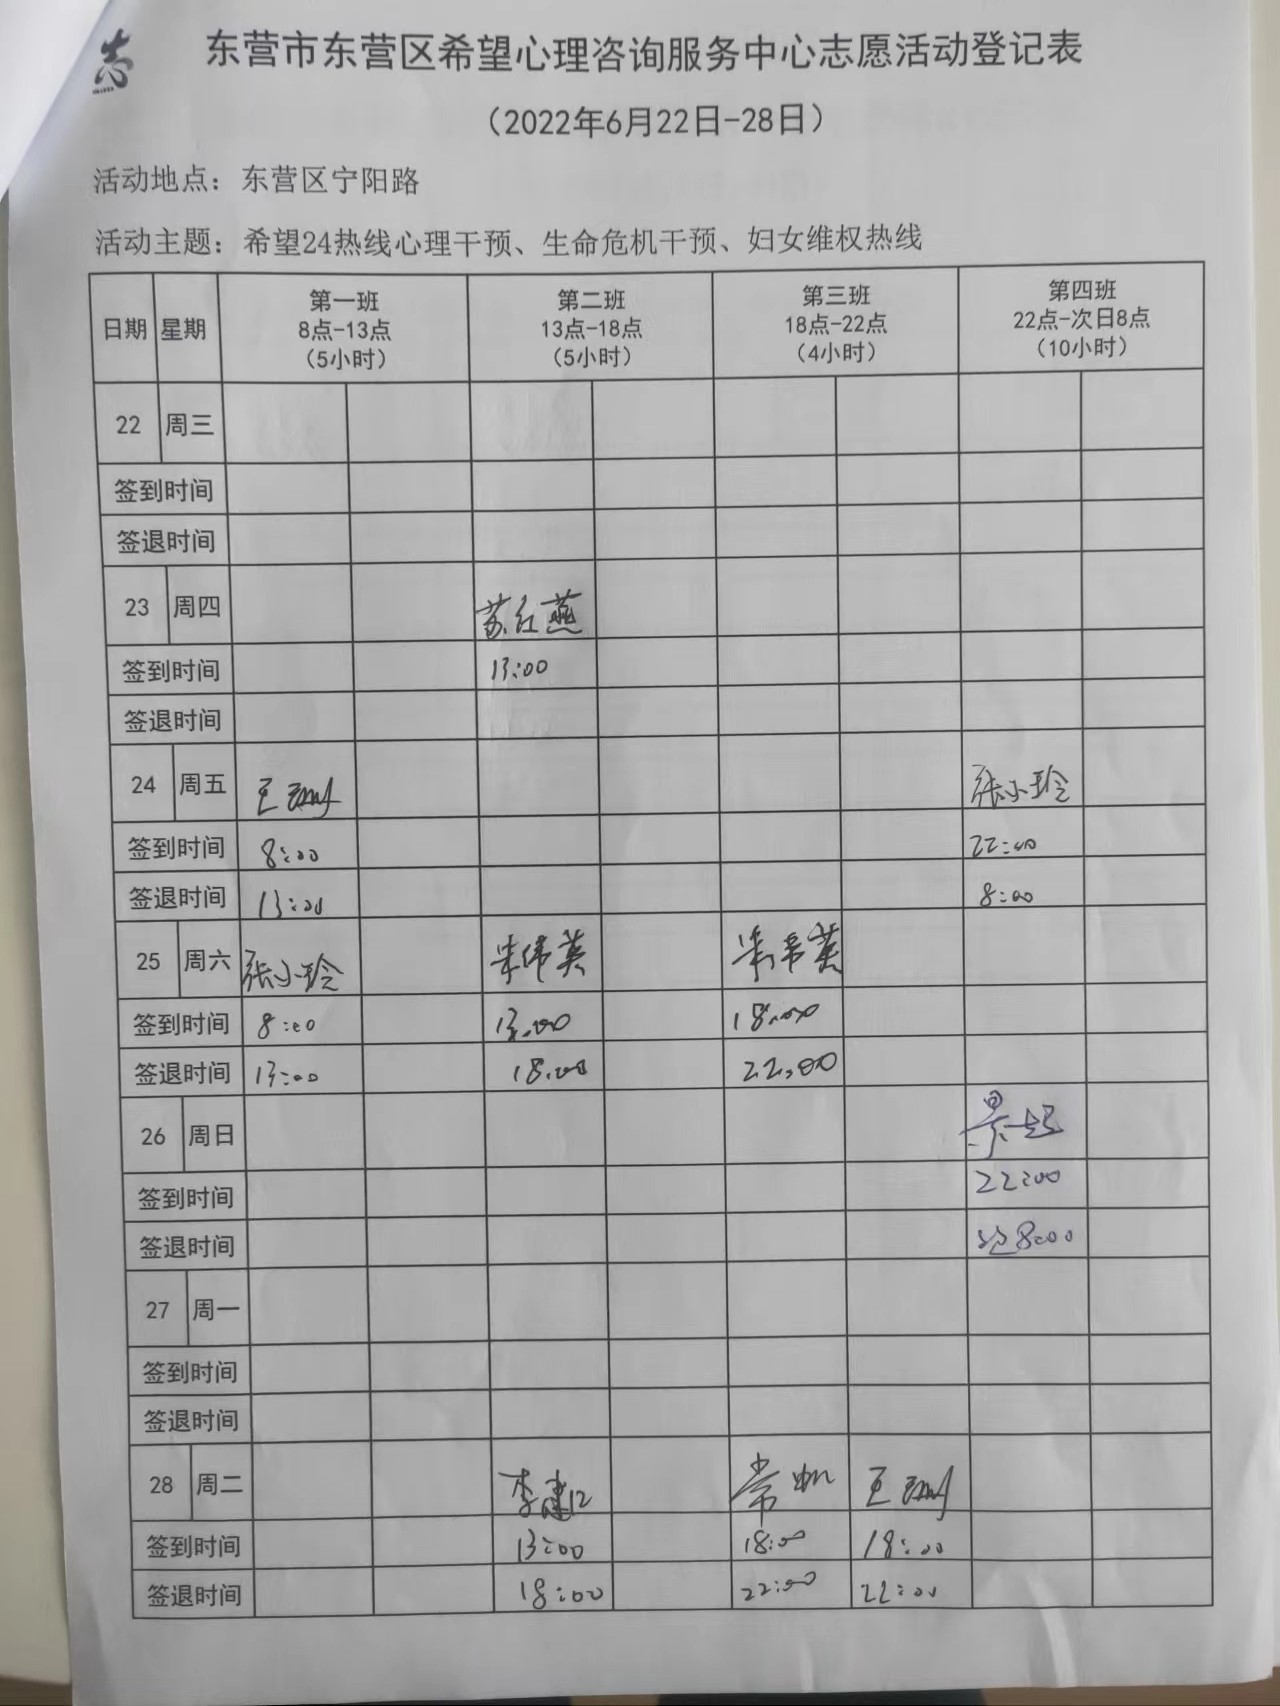 志
东营市东营区希望心理咨询服务中心志愿活动登记表
（2022年6月22日-28日）
活动地点：东营区宁阳路
活动主题：希望24热线心理干预、生命危机干预、妇女维权热线
日期 星期 第一班 8点-13点 （5小时） 第二班 13点-18点 （5小时） 第三班 18点-22点 （4小时） 第四班 22点-次日8点 （10小时）
22 周三
签到时间
签退时间
23 周四 苏红燕
签到时间 13:00
签退时间
24 周五 王 张小玲
签到时间 8:00 22:00
签退时间 13:00 8:00
25 周六 张小玲 伟英 英
签到时间 8:00 13:00 18:00
签退时间 13:00 18:00 22:00
26 周日 景一
签到时间 22:00
签退时间 8:00
27 周一
签到时间
签退时间
28 周二 李建 常 王
签到时间 13:00 18:00 18:00
签退时间 18:00 22:00 22:00